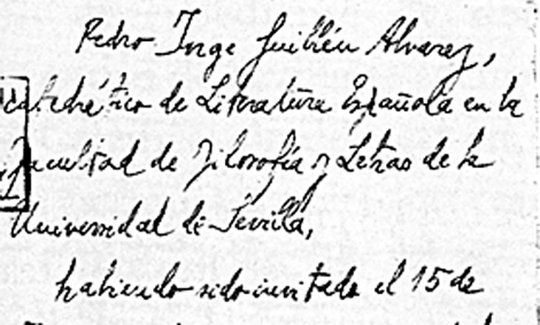 Pedro Jorge Guillén Alvarez,
catedrático de Literatura Española en la
Facultad de Filosofía y Letras de la
Universidad de Sevilla,
habiendo sido invitado el 15 de